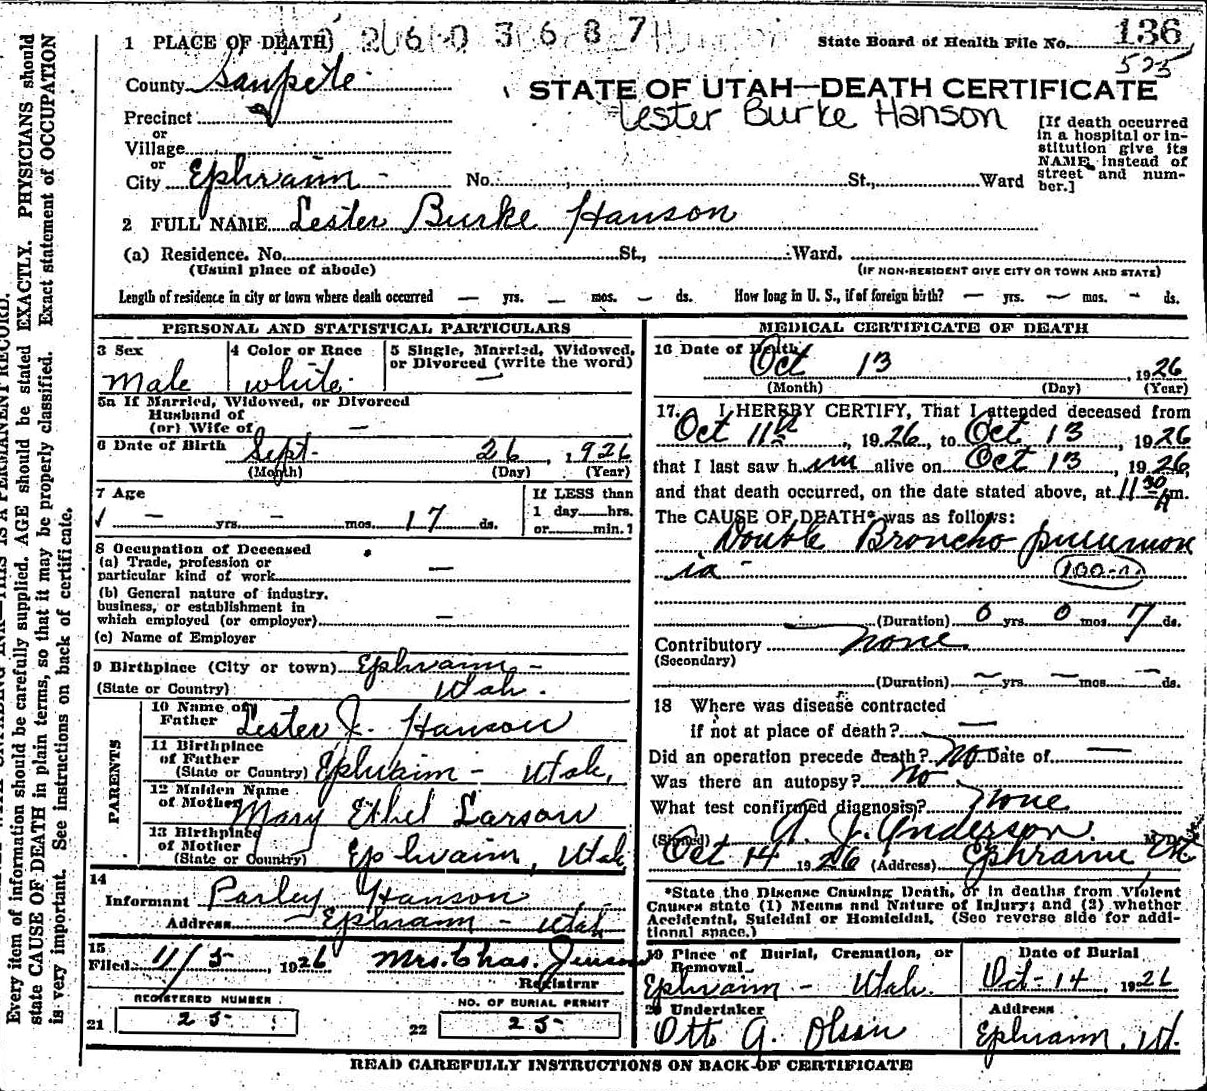 1 PLACE OF DEATH
2600 3687
State Board of Health File No. 136
525
County Sanpete
STATE OF UTAH—DEATH CERTIFICATE
Lester Burke Hanson
Precinct
or
Village
or
City Ephraim - No. St., Ward
[If death occurred
in a hospital or in-
stitution give its
NAME instead of
street and num-
ber.]
2 FULL NAME Lester Burke Hanson
(a) Residence. No. St., Ward.
(Usual place of abode) (IF NON-RESIDENT GIVE CITY OR TOWN AND STATE)
Length of residence in city or town where death occurred — yrs. — mos. — ds. How long in U. S., if of foreign birth? — yrs. — mos. — ds.
PERSONAL AND STATISTICAL PARTICULARS
3 Sex
Male
4 Color or Race
white
5 Single, Married, Widowed,
or Divorced (write the word)
—
5a If Married, Widowed, or Divorced
Husband of
(or) Wife of —
6 Date of Birth Sept. 26, 1926
(Month) (Day) (Year)
7 Age
— yrs. - mos. 17 ds.
If LESS than
1 day hrs.
or min.?
8 Occupation of Deceased
(a) Trade, profession or
particular kind of work —
(b) General nature of industry,
business, or establishment in
which employed (or employer) —
(c) Name of Employer
9 Birthplace (City or town) Ephraim -
(State or Country) Utah.
PARENTS
10 Name of
Father Lester J. Hanson
11 Birthplace
of Father
(State or Country) Ephraim - Utah,
12 Maiden Name
of Mother Mary Ethel Larson
13 Birthplace
of Mother
(State or Country) Ephraim, Utah
14
Informant Parley Hanson
Address Ephraim - Utah
15
Filed 11/5, 1926 Mrs. Chas. Jenson
Registrar
REGISTERED NUMBER
21 25
NO. OF BURIAL PERMIT
22 25
MEDICAL CERTIFICATE OF DEATH
16 Date of Death
Oct 13, 1926
(Month) (Day) (Year)
17. I HEREBY CERTIFY, That I attended deceased from
Oct 11th, 1926, to Oct 13 1926
that I last saw him alive on Oct 13, 1926,
and that death occurred, on the date stated above, at 11 30 A m.
The CAUSE OF DEATH* was as follows:
Double Broncho pneumon
ia -
(Duration) 0 yrs. 0 mos. 7 ds.
Contributory none.
(Secondary)
(Duration) — yrs. — mos. — ds.
18 Where was disease contracted
if not at place of death? —
Did an operation precede death? No Date of —
Was there an autopsy? No
What test confirmed diagnosis? none
(Signed) A. J. Anderson.
Oct 14 1926 (Address) Ephraim Ut
*State the Disease Causing Death, or in deaths from Violent
Causes state (1) Means and Nature of Injury; and (2) whether
Accidental, Suicidal or Homicidal. (See reverse side for addi-
tional space.)
19 Place of Burial, Cremation, or
Removal
Ephraim - Utah.
Date of Burial
Oct-14 1926
20 Undertaker
Otto A. Olson
Address
Ephraim, Ut.
READ CAREFULLY INSTRUCTIONS ON BACK OF CERTIFICATE
Every item of information should be carefully supplied. AGE should be stated EXACTLY. PHYSICIANS should
state CAUSE OF DEATH in plain terms, so that it may be properly classified. Exact statement of OCCUPATION
is very important. See instructions on back of certificate.